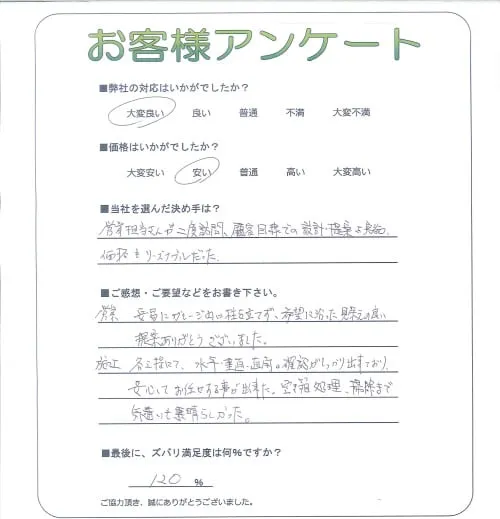 お客様アンケート
■弊社の対応はいかがでしたか？
大変良い 良い 普通 不満 大変不満
■価格はいかがでしたか？
大変安い 安い 普通 高い 大変高い
■当社を選んだ決め手は？
営業担当さんが二度訪問、顧客目線での設計・提案を実施。
価格もリーズナブルだった。
■ご感想・ご要望などをお書き下さい。
営業 安易にガレージ内に柱を立てず、希望に沿った見栄えの良い
提案ありがとうございました。
施工 各工程にて、水平・垂直・直角の確認がしっかり出来ており、
安心してお任せする事が出来た。空き箱処理、掃除まで
気遣いも素晴らしかった。
■最後に、ズバリ満足度は何％ですか？
120 %
ご協力頂き、誠にありがとうございました。